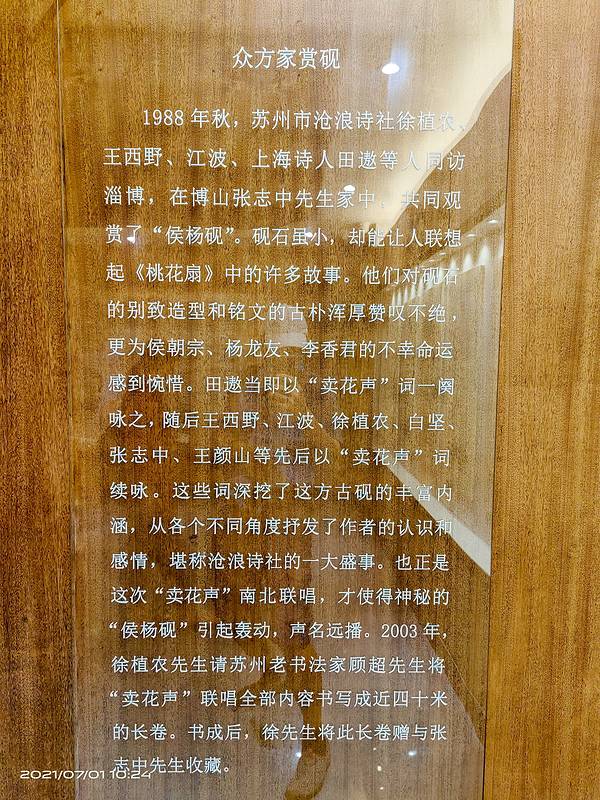 众方家赏砚
1988年秋，苏州市沧浪诗社徐植农、
王西野、江波、上海诗人田遨等人同访
淄博，在博山张志中先生家中，共同观
赏了“侯杨砚”。砚石虽小，却能让人联想
起《桃花扇》中的许多故事。他们对砚石
的别致造型和铭文的古朴浑厚赞叹不绝，
更为侯朝宗、杨龙友、李香君的不幸命运
感到惋惜。田遨当即以“卖花声”词一阕
咏之，随后王西野、江波、徐植农、白坚、
张志中、王颜山等先后以“卖花声”词
续咏。这些词深挖了这方古砚的丰富内
涵，从各个不同角度抒发了作者的认识和
感情，堪称沧浪诗社的一大盛事。也正是
这次“卖花声”南北联唱，才使得神秘的
“侯杨砚”引起轰动，声名远播。2003年，
徐植农先生请苏州老书法家顾超先生将
“卖花声”联唱全部内容书写成近四十米
的长卷。书成后，徐先生将此长卷赠与张
志中先生收藏。
2021/07/01 10:24